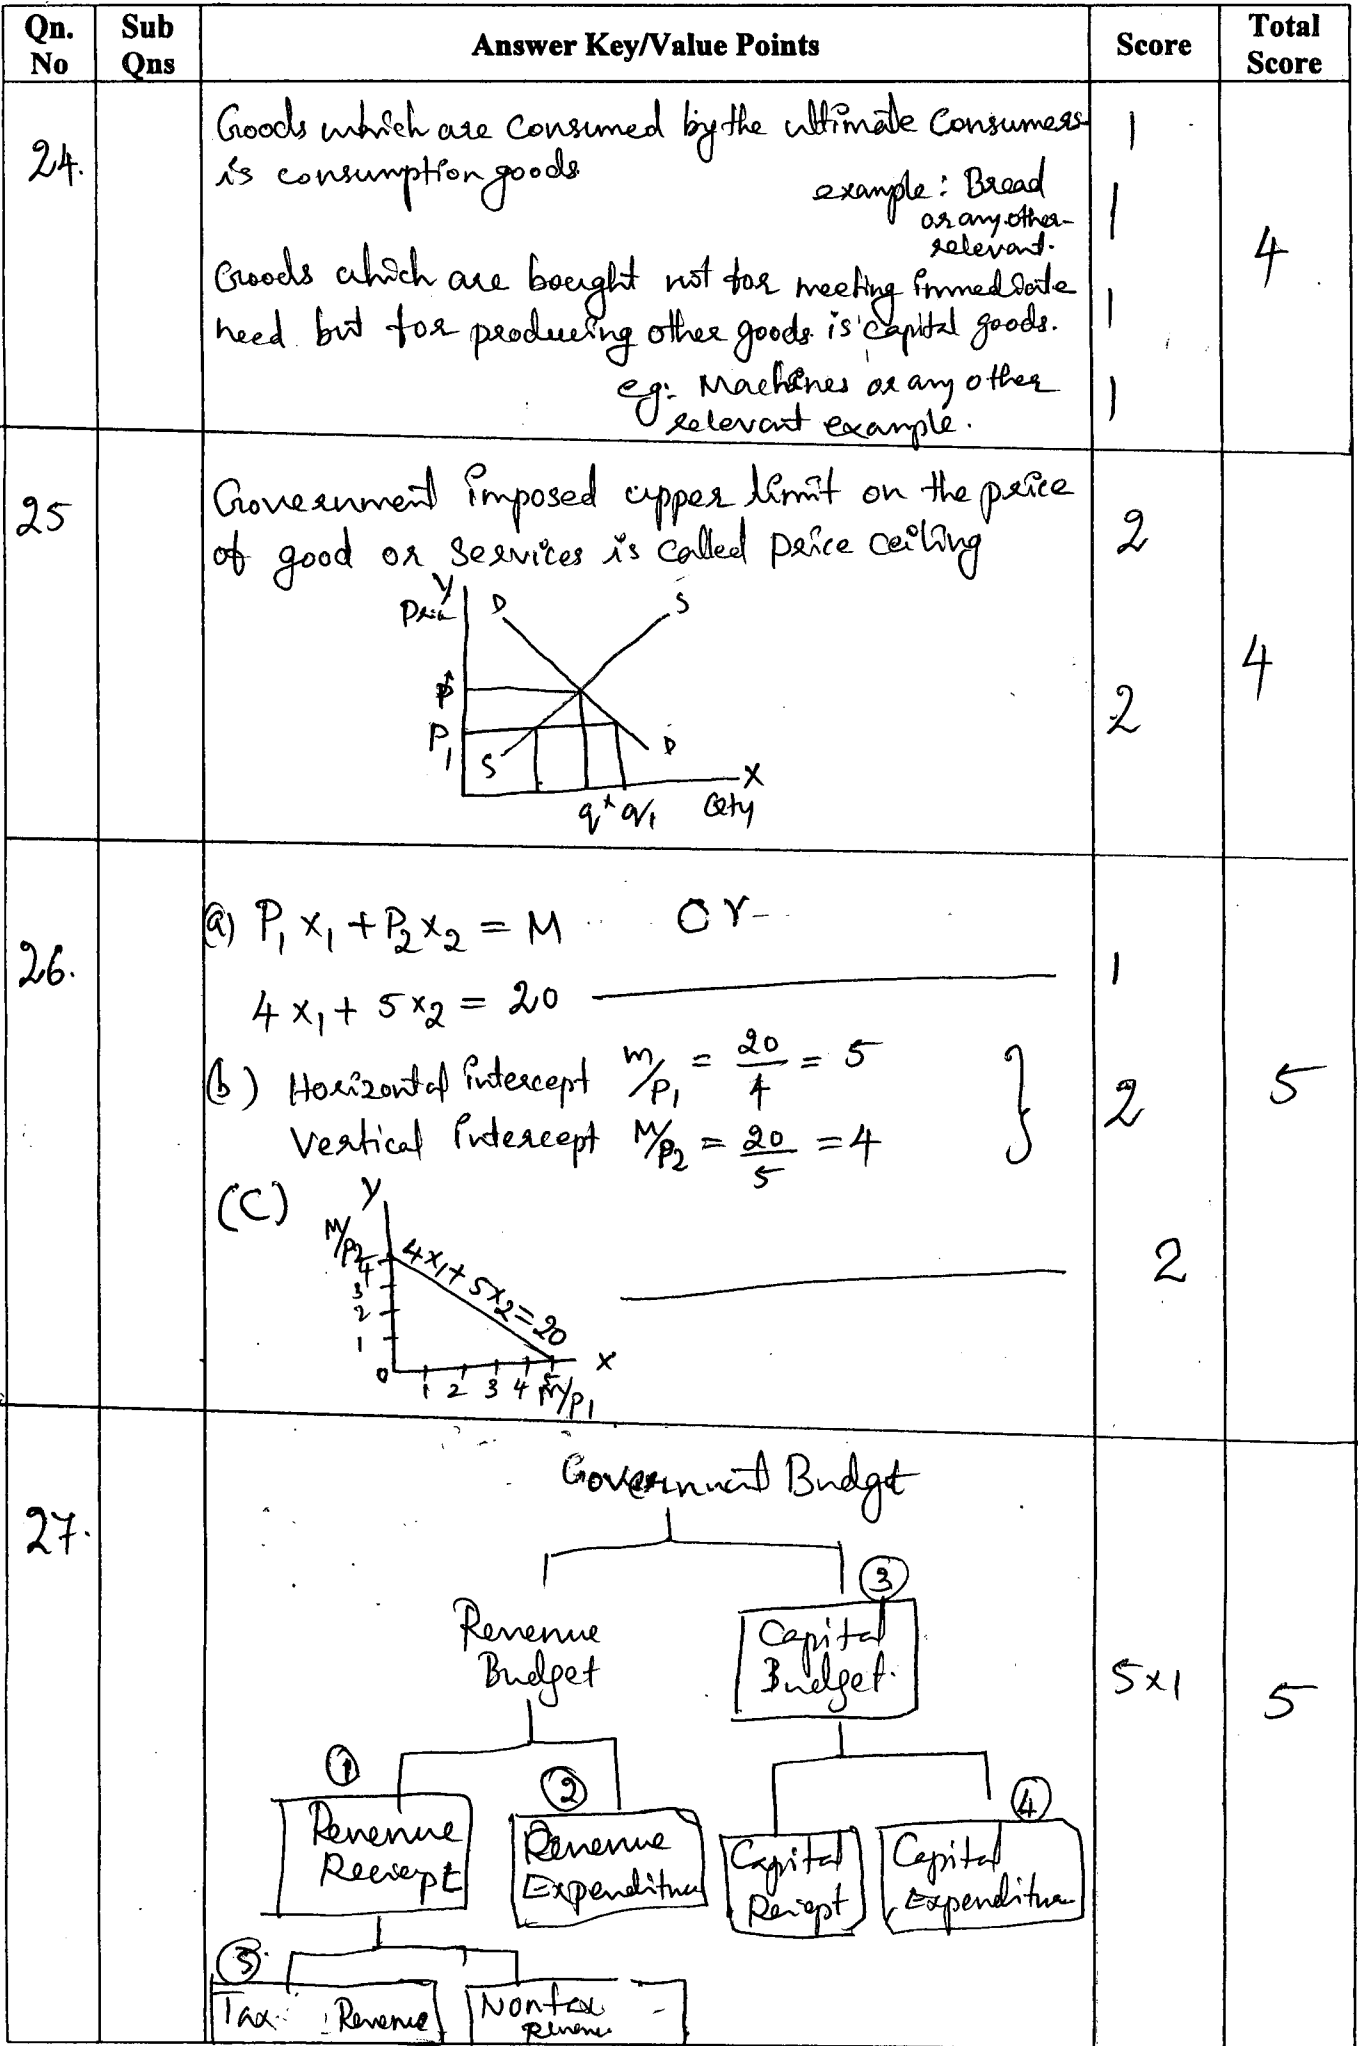 Qn. No Sub Qns Answer Key/Value Points Score Total Score
24.
Goods which are Consumed by the ultimate Consumers 1
is consumption goods
example: Bread 1
or any other
relevant.
4
Goods which are bought not for meeting immediate 1
need but for producing other goods is capital goods.
eg: Machines or any other 1
relevant example.
25
Government imposed upper limit on the price 2
of good or services is called price ceiling
Y
Price D S
P* 4
2
P1
S D
X
q* q1 Qty
26.
(a) P1 x1 + P2 x2 = M or
4 x1 + 5 x2 = 20 1
(b) Horizontal intercept m/P1 = 20/4 = 5
2 5
Vertical intercept M/P2 = 20/5 = 4
(C) Y
M/P2
4 4x1 + 5x2 = 20 2
3
2
1
0 1 2 3 4 5 X
M/P1
27.
Government Budgt
3
Revenue Capital
Budget Budget.
5x1 5
1 2 4
Revenue Revenue Capital Capital
Reciept Expenditure Reciept Expenditure
5
Tax Revenue Nontax
Revenue